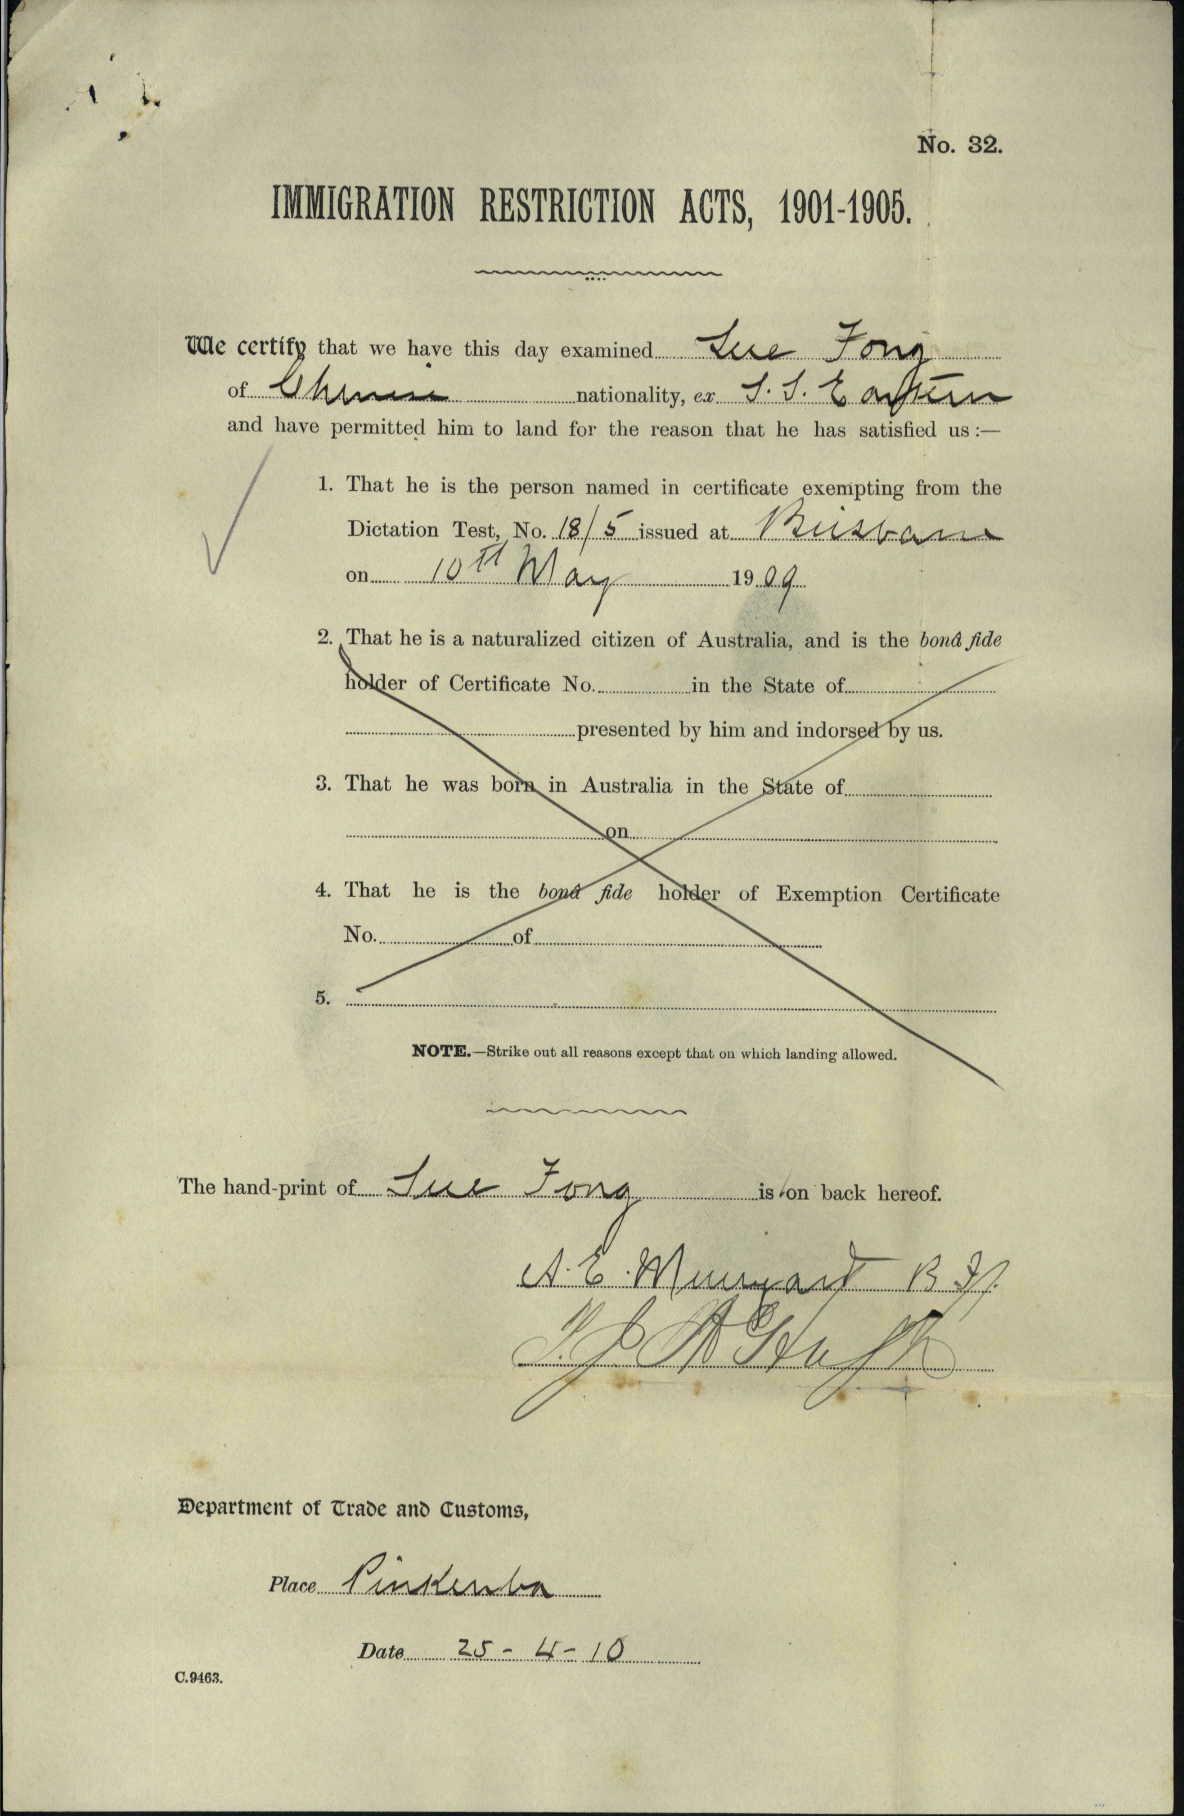 No. 32.
IMMIGRATION RESTRICTION ACTS, 1901-1905.
We certify that we have this day examined Sue Fong
of Chinese nationality, ex S. S. Eastern
and have permitted him to land for the reason that he has satisfied us :—
1. That he is the person named in certificate exempting from the
Dictation Test, No. 18/5 issued at Brisbane
on 10th May 1909
2. That he is a naturalized citizen of Australia, and is the bonâ fide
holder of Certificate No. in the State of
presented by him and indorsed by us.
3. That he was born in Australia in the State of
on
4. That he is the bonâ fide holder of Exemption Certificate
No. of
5.
NOTE.—Strike out all reasons except that on which landing allowed.
The hand-print of Sue Fong is on back hereof.
A. E.
T. J.
Department of Trade and Customs,
Place Pinkenba
Date 25 - 4 - 10
C.9463.